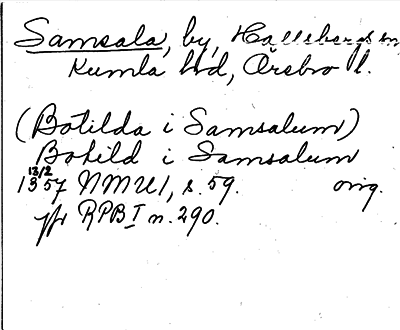 Samsala, by, Hallsbergs sn,
Kumla hd, Örebro l.
(Botilda i Samsalum)
Bohild i Samsalum
13/2
1357 NMU I, s. 59. orig.
jfr RPB I n. 290.